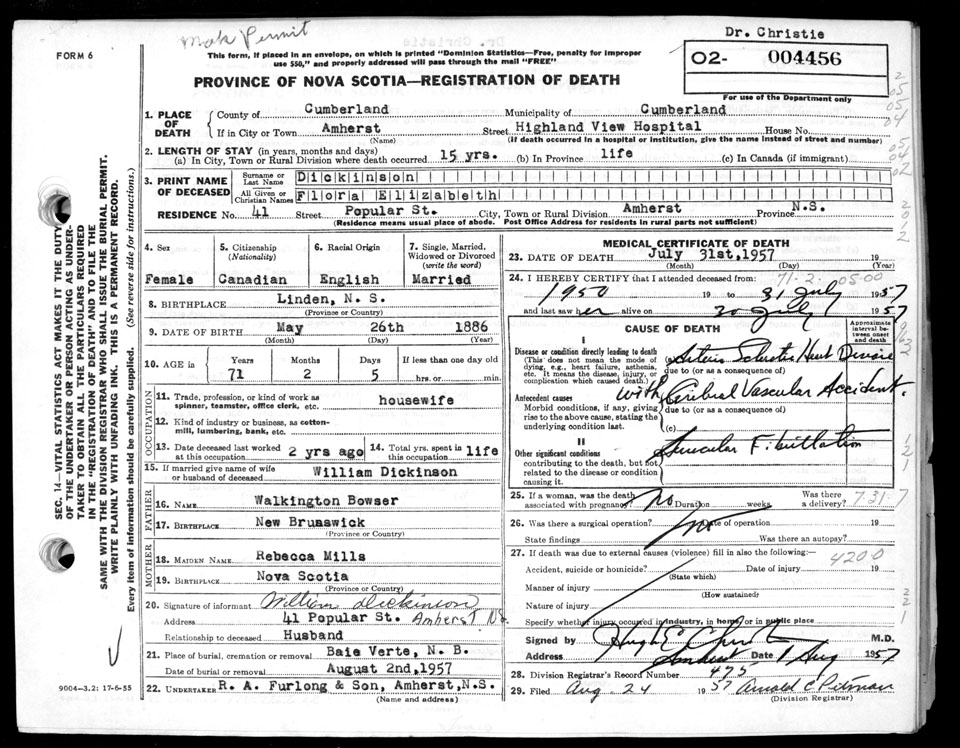 Mark Permit
Dr. Christie
FORM 6
This form, if placed in an envelope, on which is printed "Dominion Statistics—Free, penalty for improper
use $50," and properly addressed will pass through the mail "FREE"
O2- 004456
PROVINCE OF NOVA SCOTIA—REGISTRATION OF DEATH
For use of the Department only
1. PLACE OF DEATH { County of Cumberland Municipality of Cumberland
If in City or Town Amherst Street Highland View Hospital House No.
(Name) (If death occurred in a hospital or institution, give the name instead of street and number)
2. LENGTH OF STAY (in years, months and days)
(a) In City, Town or Rural Division where death occurred 15 yrs. (b) In Province life (c) In Canada (if immigrant)
3. PRINT NAME OF DECEASED { Surname or Last Name Dickinson
All Given or Christian Names Flora Elizabeth
RESIDENCE No. 41 Street Popular St. City, Town or Rural Division Amherst Province N.S.
(Residence means usual place of abode. Post Office Address for residents in rural parts not sufficient)
SEC. 14—VITAL STATISTICS ACT MAKES IT THE DUTY
OF THE UNDERTAKER OR PERSON ACTING AS UNDER-
TAKER TO OBTAIN ALL THE PARTICULARS REQUIRED
IN THE "REGISTRATION OF DEATH" AND TO FILE THE
SAME WITH THE DIVISION REGISTRAR WHO SHALL ISSUE THE BURIAL PERMIT.
WRITE PLAINLY WITH UNFADING INK. THIS IS A PERMANENT RECORD.
Every item of information should be carefully supplied. (See reverse side for instructions.)
4. Sex
Female
5. Citizenship
(Nationality)
Canadian
6. Racial Origin
English
7. Single, Married,
Widowed or Divorced
(write the word)
Married
8. BIRTHPLACE Linden, N. S.
(Province or Country)
9. DATE OF BIRTH May 26th 1886
(Month) (Day) (Year)
10. AGE in Years Months Days If less than one day old
71 2 5 hrs. or min.
OCCUPATION
11. Trade, profession, or kind of work as
spinner, teamster, office clerk, etc. housewife
12. Kind of industry or business, as cotton-
mill, lumbering, bank, etc.
13. Date deceased last worked
at this occupation 2 yrs ago
14. Total yrs. spent in
this occupation life
15. If married give name of wife
or husband of deceased William Dickinson
FATHER
16. NAME Walkington Bowser
17. BIRTHPLACE New Bruaswick
(Province or Country)
MOTHER
18. MAIDEN NAME Rebecca Mills
19. BIRTHPLACE Nova Scotia
(Province or Country)
20. Signature of informant William Dickinson
Address 41 Popular St. Amherst N.S.
Relationship to deceased Husband
21. Place of burial, cremation or removal Baie Verte, N. B.
Date of burial or removal August 2nd, 1957
22. UNDERTAKER R. A. Furlong & Son, Amherst, N.S.
(Name and address)
9004-3.2: 17-6-55
MEDICAL CERTIFICATE OF DEATH
23. DATE OF DEATH July 31st, 1957 19
(Month) (Day) (Year)
71-2-05-00
24. I HEREBY CERTIFY that I attended deceased from:
1950 19 to 31 July 1957
and last saw her alive on 30 July 1957
CAUSE OF DEATH
Approximate interval between onset and death
I
Disease or condition directly leading to death
(This does not mean the mode of
dying, e.g., heart failure, asthenia,
etc. It means the disease, injury, or
complication which caused death.)
Arterio Sclerotic Heart Disease
due to (or as a consequence of)
with Cerebral Vascular Accident.
Antecedent causes
Morbid conditions, if any, giving
rise to the above cause, stating the
underlying condition last.
due to (or as a consequence of)
(c)
II
Other significant conditions
contributing to the death, but not
related to the disease or condition
causing it.
Auricular Fibrillation
25. If a woman, was the death
associated with pregnancy? No Duration weeks Was there
a delivery?
7-31-7
26. Was there a surgical operation? No Date of operation 19
State findings Was there an autopsy?
27. If death was due to external causes (violence) fill in also the following:
4200
Accident, suicide or homicide? Date of injury 19
(State which)
Manner of injury
(How sustained)
Nature of injury
Specify whether injury occurred in industry, in home, or in public place
Signed by Hugh E. Christie M.D.
Address Amherst Date 1 Aug 1957
28. Division Registrar's Record Number 475
29. Filed Aug. 24 1957 Arnold C Pitman
(Division Registrar)